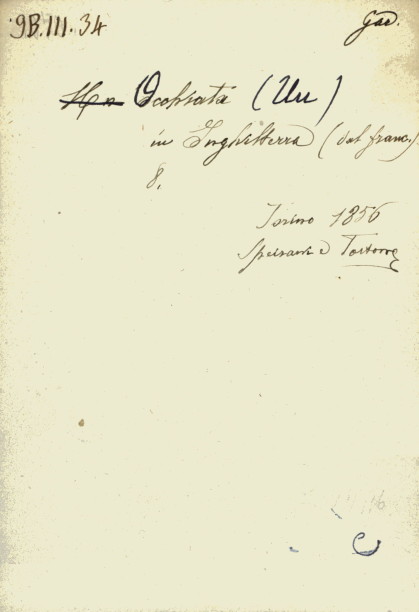 9B.III.34
Gar.
Occhiata (Un)
in Inghilterra (dal franc.)
8.
Torino 1856
Speirani e Tortone